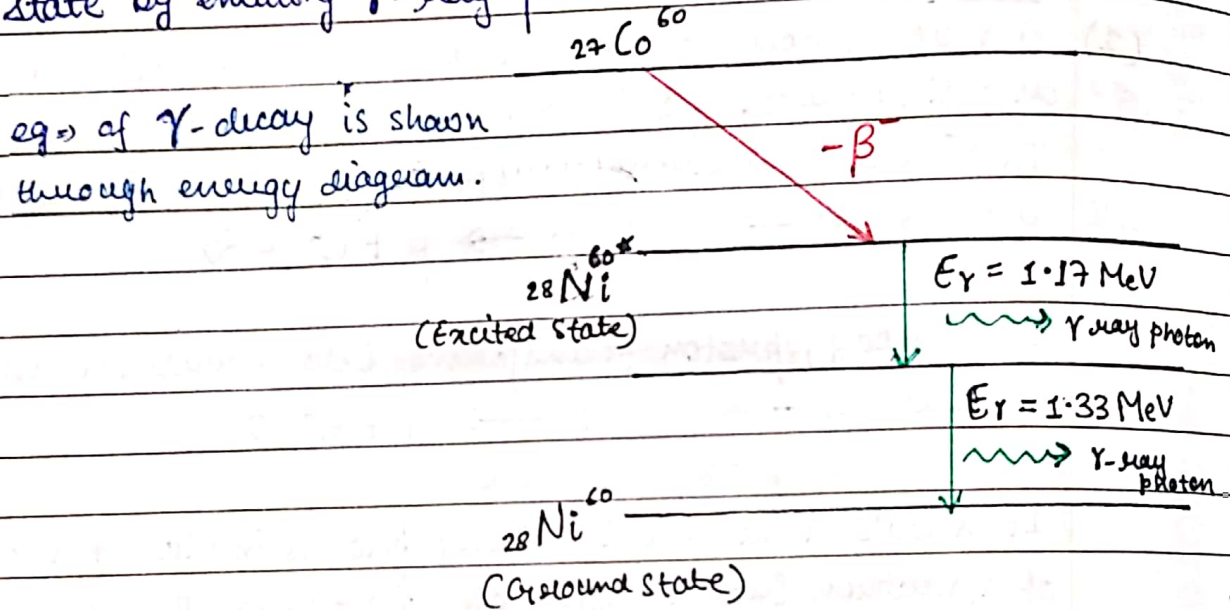 state by emitting γ-ray
₂₇Co⁶⁰
eg⇒ of γ-decay is shown
through energy diagram.
-β⁻
₂₈Ni⁶⁰*
(Excited State)
Eγ = 1.17 MeV
γ ray photon
Eγ = 1.33 MeV
γ-ray
photon
₂₈Ni⁶⁰
(Ground state)